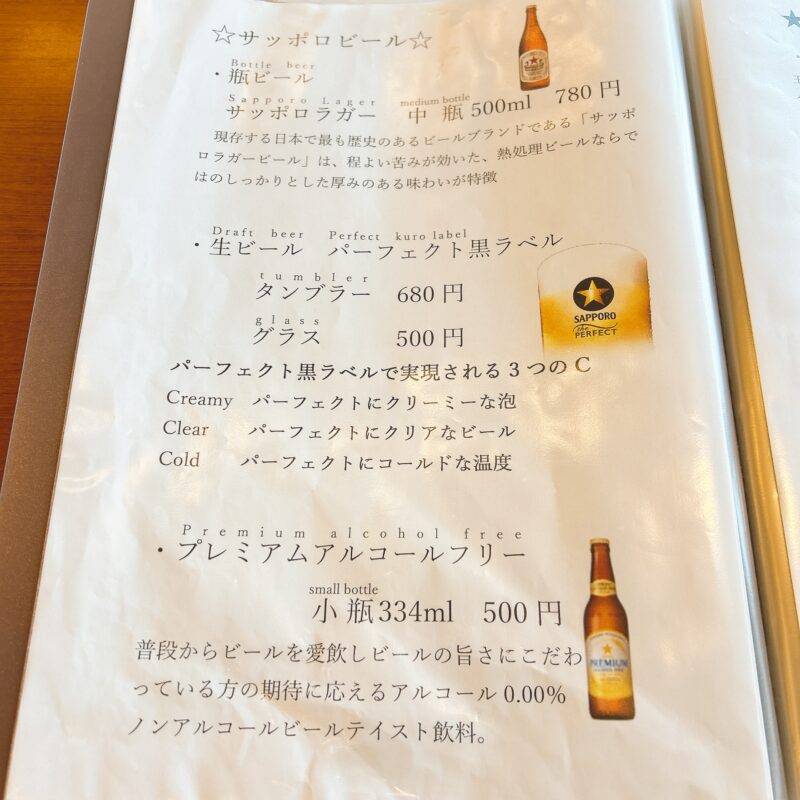 ☆サッポロビール☆
Bottle beer
・瓶ビール
Sapporo Lager medium bottle
サッポロラガー 中 瓶 500ml 780 円
現存する日本で最も歴史のあるビールブランドである「サッポ
ロラガービール」は、程よい苦みが効いた、熱処理ビールならで
はのしっかりとした厚みのある味わいが特徴
Draft beer Perfect kuro label
・生ビール パーフェクト黒ラベル
tumbler
タンブラー 680 円
glass
グラス 500 円
SAPPORO
the PERFECT
パーフェクト黒ラベルで実現される 3 つの C
Creamy パーフェクトにクリーミーな泡
Clear パーフェクトにクリアなビール
Cold パーフェクトにコールドな温度
Premium alcohol free
・プレミアムアルコールフリー
small bottle
小 瓶 334ml 500 円
普段からビールを愛飲しビールの旨さにこだわ
っている方の期待に応えるアルコール 0.00%
ノンアルコールビールテイスト飲料。
PREMIUM